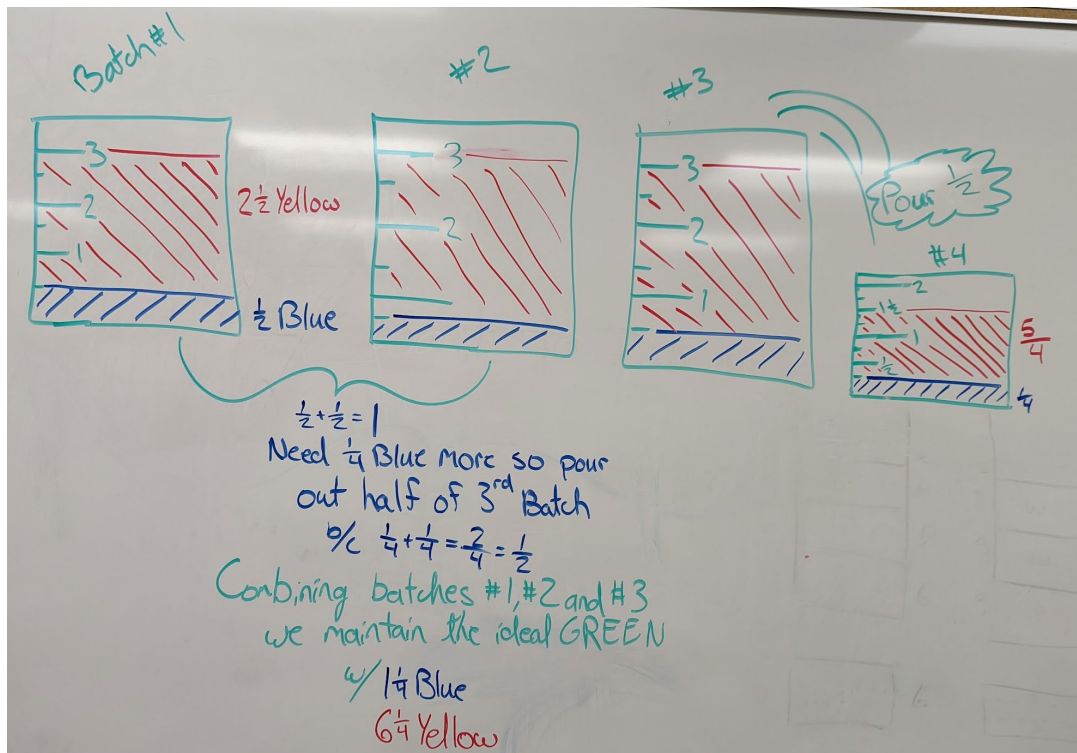 Batch #1
#2
#3
3
2
1
2 1/2 Yellow
1/2 Blue
3
2
3
2
1
Pour 1/2
#4
2
1 1/2
1
1/2
5/4
1/4
1/2 + 1/2 = 1
Need 1/4 Blue more so pour
out half of 3rd Batch
b/c 1/4 + 1/4 = 2/4 = 1/2
Combining batches #1, #2 and #3
we maintain the ideal GREEN
w/ 1 1/4 Blue
6 1/4 Yellow